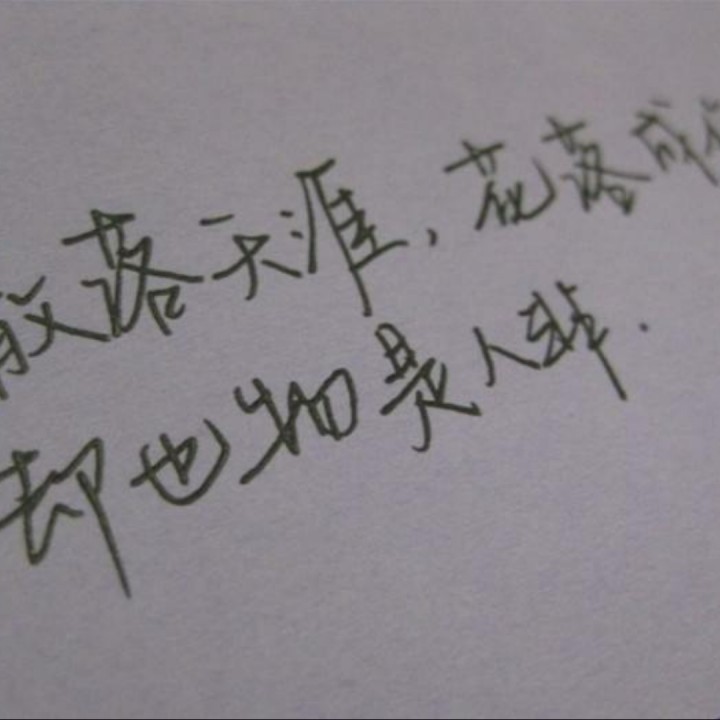 散落天涯,花落成
却也物是人非.